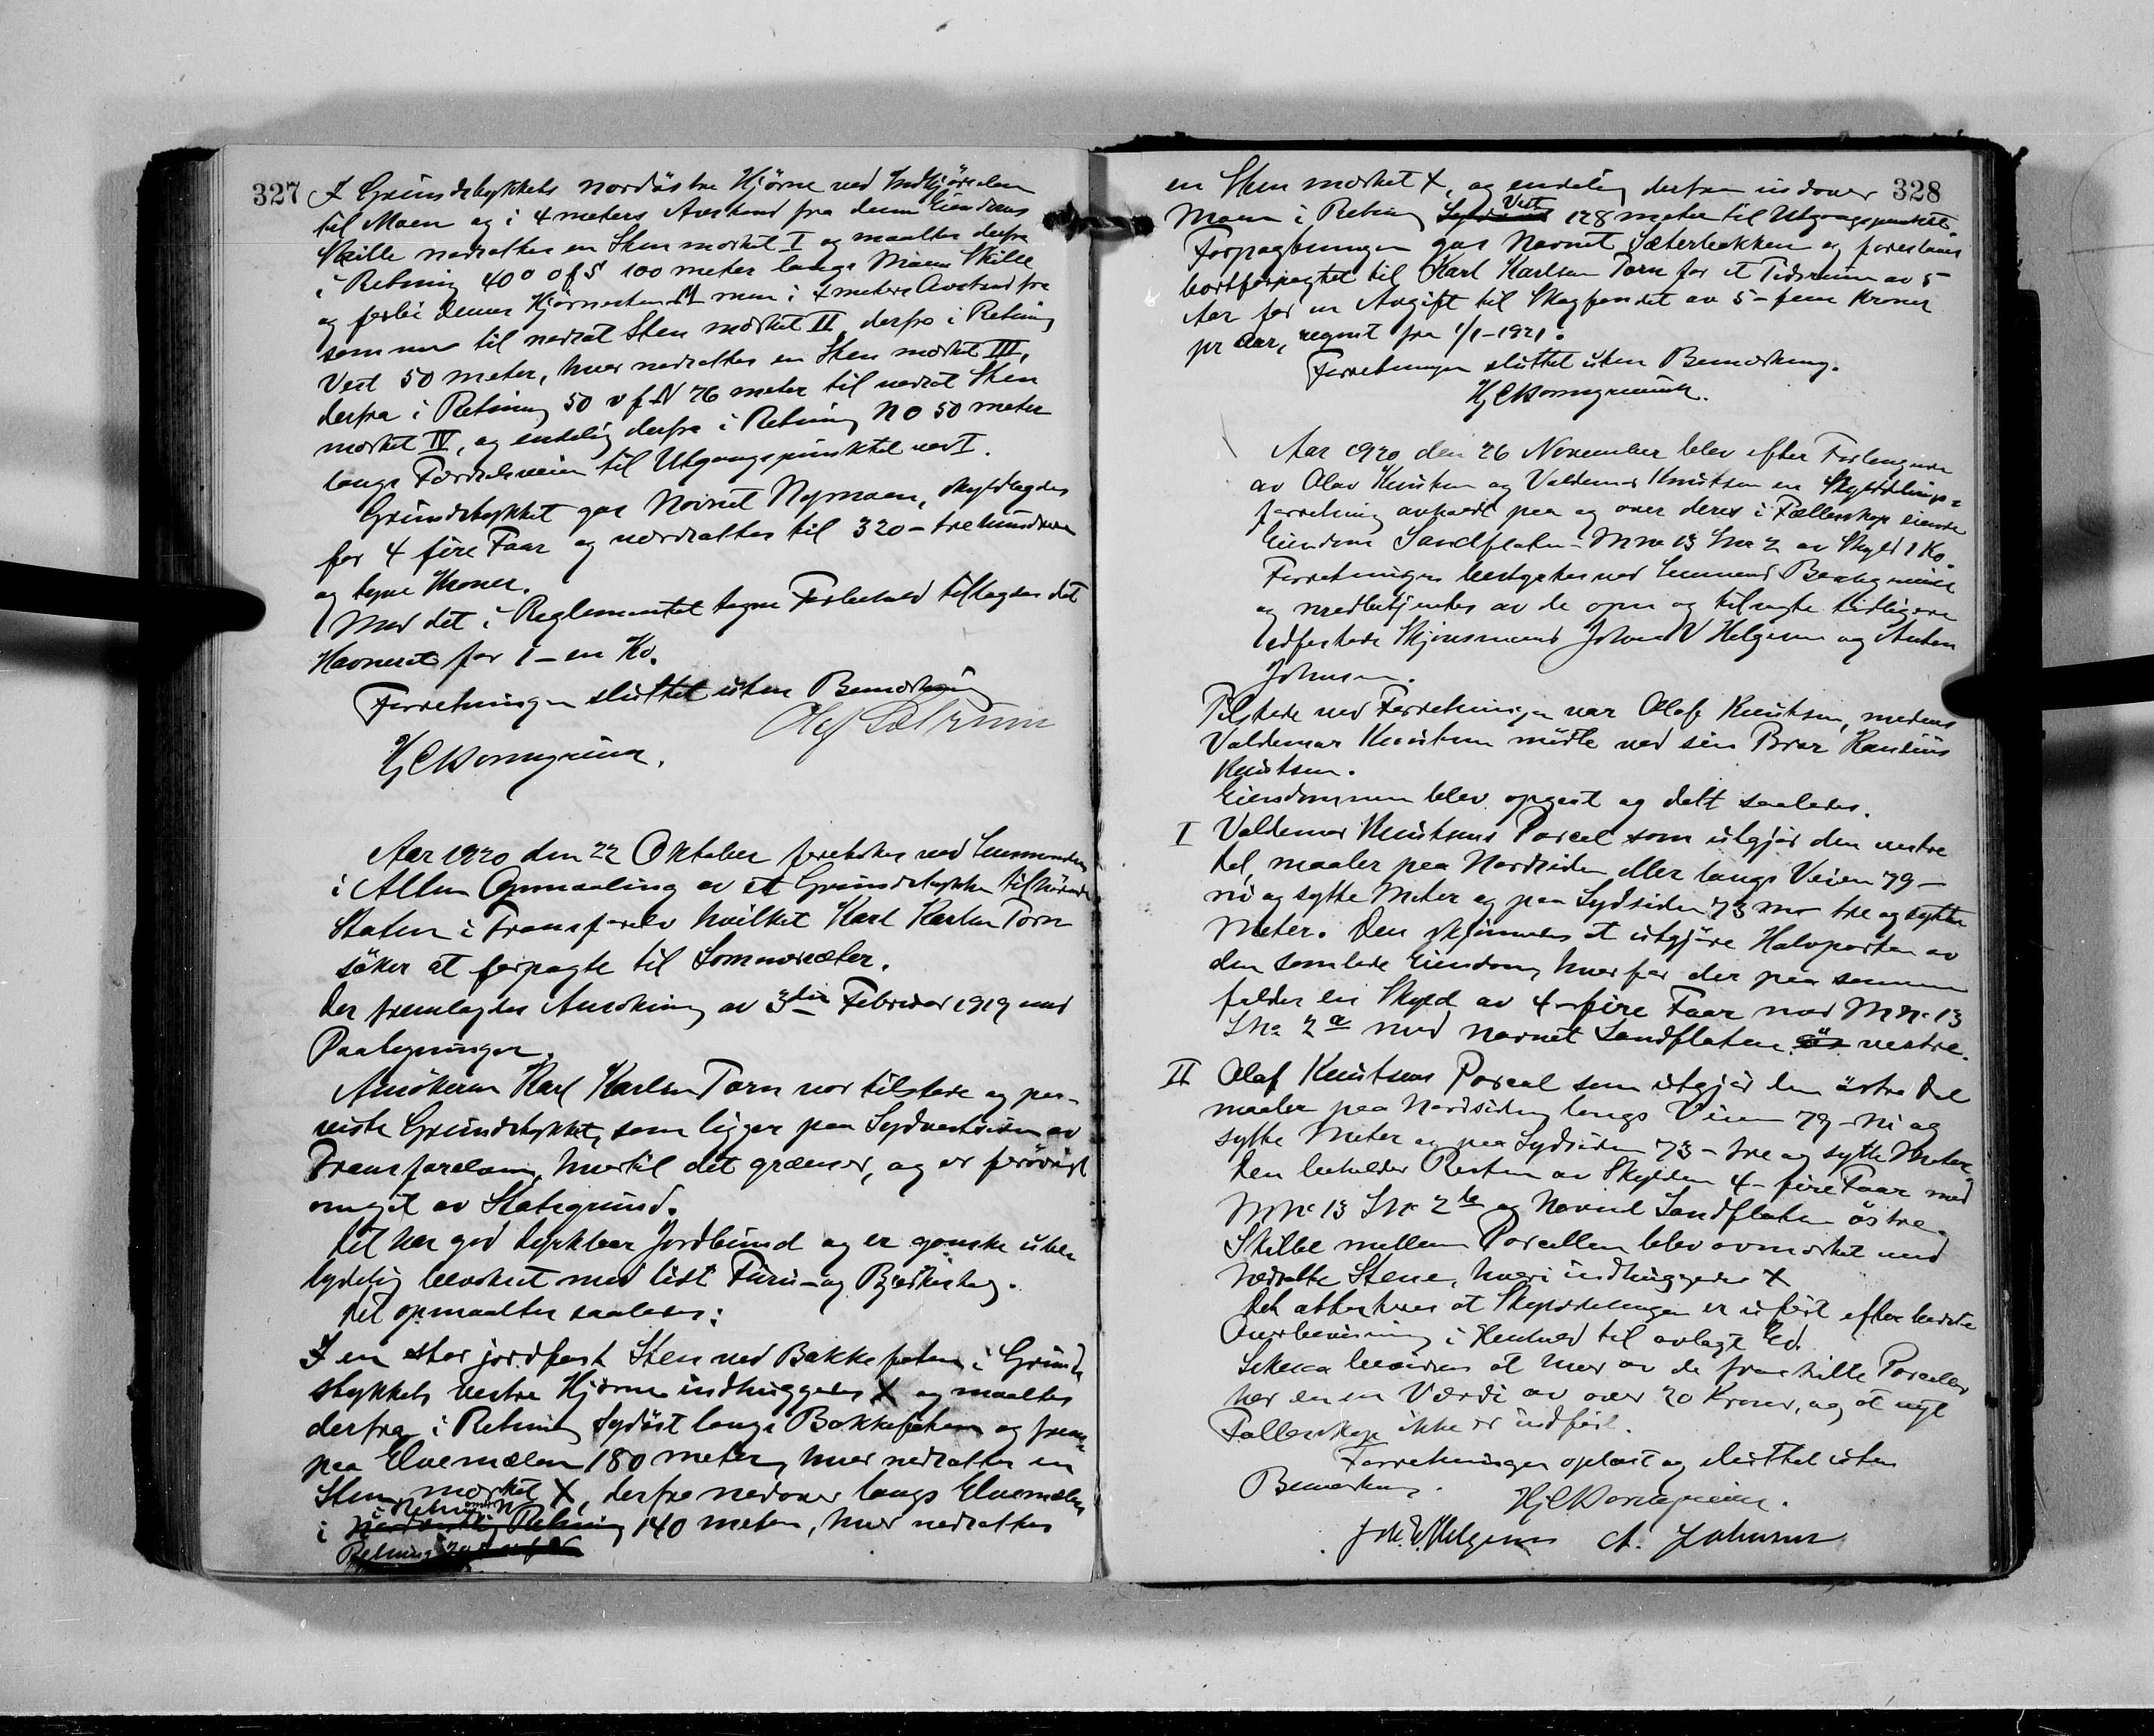 327
I Grundstykkets nordöstre Hjörne ved Indkjörselen
til Moen og i 4 meters Avstand fra denne Eiendoms
Skille nedsattes en Sten merket I og maaltes derfra
i Retning 40° O f S 100 meter langs Moens Skille
og forbi dennes Hjörnesten men i 4 meters Avstand fra
samme til nedsat Sten merket II, derfra i Retning
Vest 50 meter, hvor nedsattes en Sten merket III,
derfra i Retning 50 v f N 76 meter til nedsat Sten
merket IV, og endelig derfra i Retning NO 50 meter
langs Færdselsveien til Utgangspunktet ved I.
Grundstykket gav Navnet Nymoen, skyldlagdes
for 4 fire Faar og værdsattes til 320 - trehundrede
og tyve Kroner.
Med det i Reglementet tagne Forbehold tillagdes det
Havneret for 1 - en Ko.
Forretningen sluttet uten Bemerkning
Aar 1920 den 22 Oktober foretokes ved Lensmanden
i Alten Opmaaling av et Grundstykke tilhörende
Staten i Transfarelv hvilket Karl Karlsen Torn
söker at forpagte til Sommersæter.
Der fremlagdes Ansökning av 3die Februar 1919 med
Paategninger.
Ansökeren Karl Karlsen Torn var tilstede og paa-
viste Grundstykket, som ligger paa Sydvestsiden av
Transfarelven, hvortil det grænser, og er forövrigt
omgit av Statsgrund.
Det har god dyrkbar Jordbund og er ganske ube-
tydelig bevokset med litt Furu- og Bjerkeskog.
Det opmaaltes saaledes:
I en stor jordfast Sten ved Bakkefoten i Grund-
stykkets vestre Hjörne indhuggedes X og maaltes
derfra i Retning Sydöst langs Bakkefoten og frem
paa Elvemælen 180 meter, hvor nedsattes en
Sten merket X, derfra nedover langs Elvemælen
i Retning N
i Retning 140 meter, hvor nedsattes
Retning
328
en Sten merket X, og endelig derfra indover
Moen i Retning Vest 128 meter til Utgangspunktet.
Forpagtningen gav Navnet Sæterbakken og foreslaaes
bortforpagtet til Karl Karlsen Torn for et Tidsrum av 5
Aar for en Avgift til Skogfondet av 5 - fem Kroner
pr Aar, regnet fra 1/1-1921.
Forretningen sluttet uten Bemerkning.
Aar 1920 den 26 November blev efter Forlangende
av Olav Knutsen og Valdemar Knutsen en Skylddelings-
forretning avholdt paa og over deres i Fællesskap eiende
Eiendom Sandfloten M.No 13 Lno 2 av Skyld 1 Ko.
Forretningen bestyrtes ved Lensmand
og medbetjentes av de opn og tilsagte tidligere
edfæstede Skjönsmænd Johan V Helgesen og Anton
Johnsen.
Tilstede ved Forretningen var Olaf Knutsen, medens
Valdemar Knutsen mödte ved sin Bror
Knutsen.
Eiendommen blev opgaat og delt saaledes.
I Valdemar Knutsens Parcel som utgjör den vestre
Del, maaler paa Nordsiden eller langs Veien 79 -
ni og sytti Meter og paa Sydsiden 73 m tre og sytti
Meter. Den skjönnedes at utgjöre Halvparten av
den samlede Eiendom, hvorfor der paa samme
falder en Skyld av 4 - fire Faar med M No 13
LNo 2 a med Navnet Sandfloten vestre.
II Olaf Knutsens Parcel som utgjör den östre Del
maaler paa Nordsiden langs Veien 79 - ni og
sytti Meter og paa Sydsiden 73 - tre og sytti Meter
Den beholder Resten av Skylden 4 - fire Faar med
M No 13 LNo 2 b og Navnet Sandfloten östre.
Skillet mellem Parcellen blev avmerket med
nedsatte Stene, hvori indhuggedes X
Det attesteres at Skylddelingen er utfört efter bedste
Overbevisning i Henhold til avlagt Ed.
bevidnes at hver av de fraskilte Parceller
har en Værdi av over 20 Kroner, og at nyt
Fællesskap ikke er indfört.
Forretningen oplæst og sluttet uten
Bemerkning.
Joh. V. Helgesen A. Johnsen